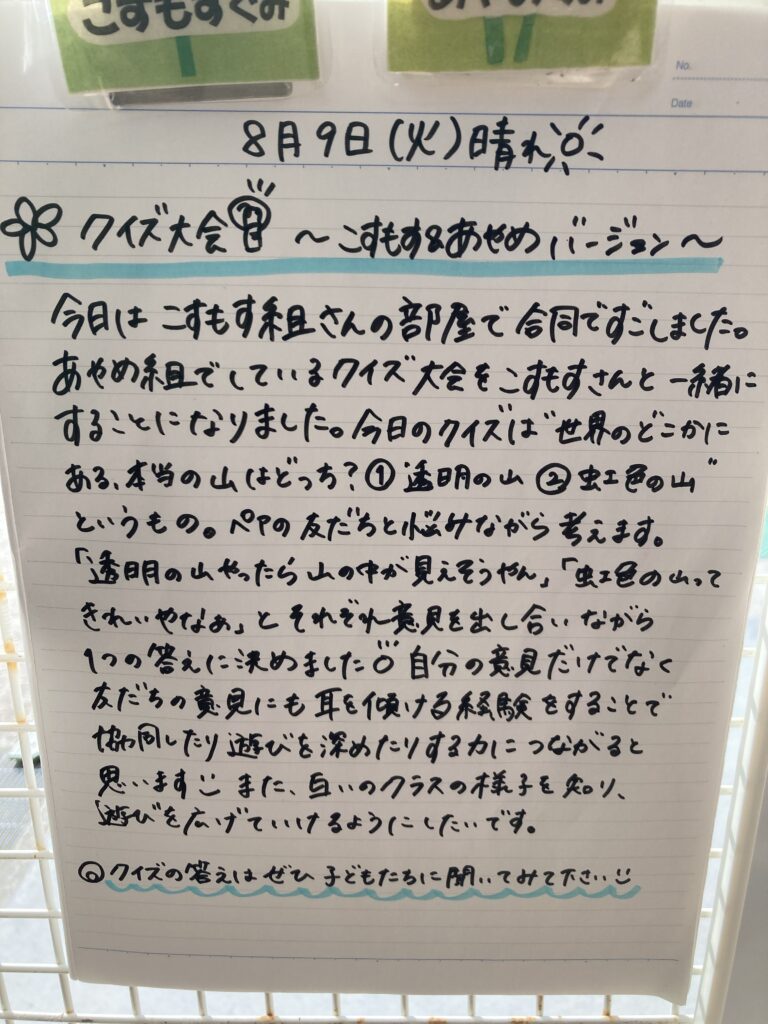 こすもすぐみ
No.
Date
8月9日(火)晴れ
クイズ大会 ~こすもす&あやめバージョン~
今日はこすもす組さんの部屋で合同ですごしました。
あやめ組でしているクイズ大会をこすもすさんと一緒に
することになりました。今日のクイズは"世界のどこかに
ある、本当の山はどっち?①透明の山 ②虹色の山"
というもの。ペアの友だちと悩みながら考えます。
「透明の山やったら山の中が見えそうやん」「虹色の山って
きれいやなぁ」とそれぞれ意見を出し合いながら
1つの答えに決めました 自分の意見だけでなく
友だちの意見にも耳を傾ける経験をすることで
協同したり遊びを深めたりする力につながると
思います また、互いのクラスの様子を知り、
遊びを広げていけるようにしたいです。
クイズの答えはぜひ子どもたちに聞いてみて下さい